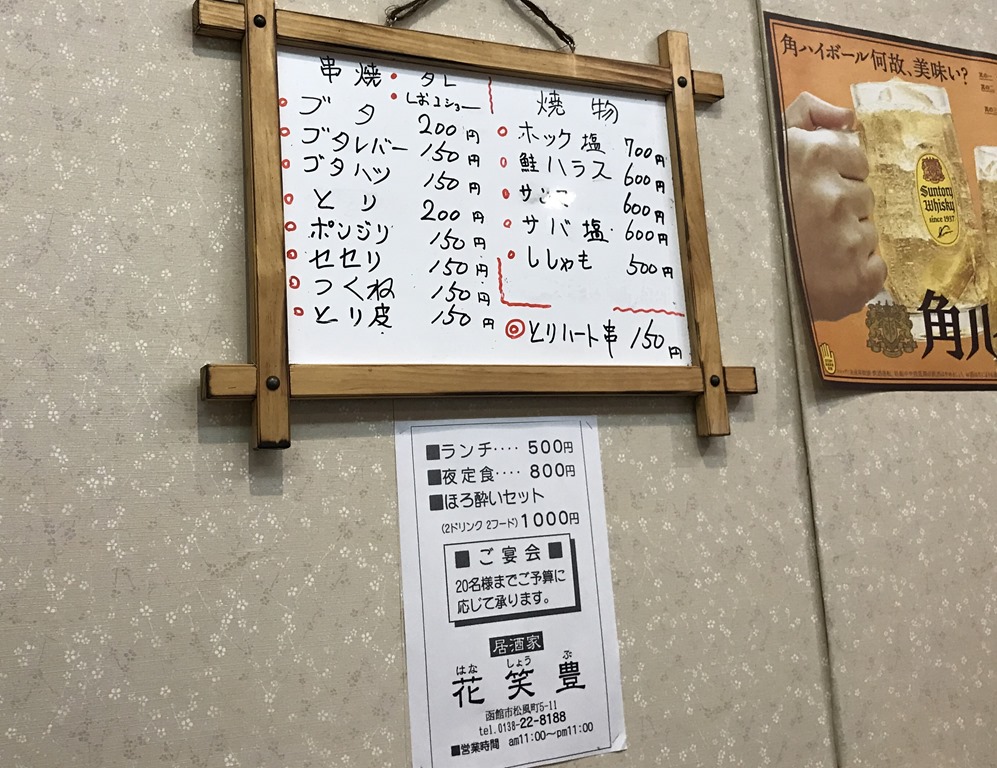 串焼 ・タレ
・しおコショー
ブタ 200円
ブタレバー 150円
ブタハツ 150円
とり 200円
ポンジリ 150円
セセリ 150円
つくね 150円
とり皮 150円
焼物
ホック塩 700円
鮭ハラス 600円
600円
サバ塩 600円
ししゃも 500円
◎とりハート串 150円
■ランチ‥‥ 500円
■夜定食‥‥ 800円
■ほろ酔いセット
(2ドリンク 2フード) 1000円
■ご宴会■
20名様までご予算に
応じて承ります。
居酒家
はな しょう ぶ
花笑豊
函館市松風町5-11
tel.0138-22-8188
■営業時間 am11:00～pm11:00
角ハイボール何故、美味い?
Suntory
Whisky
since 1937
角ハ